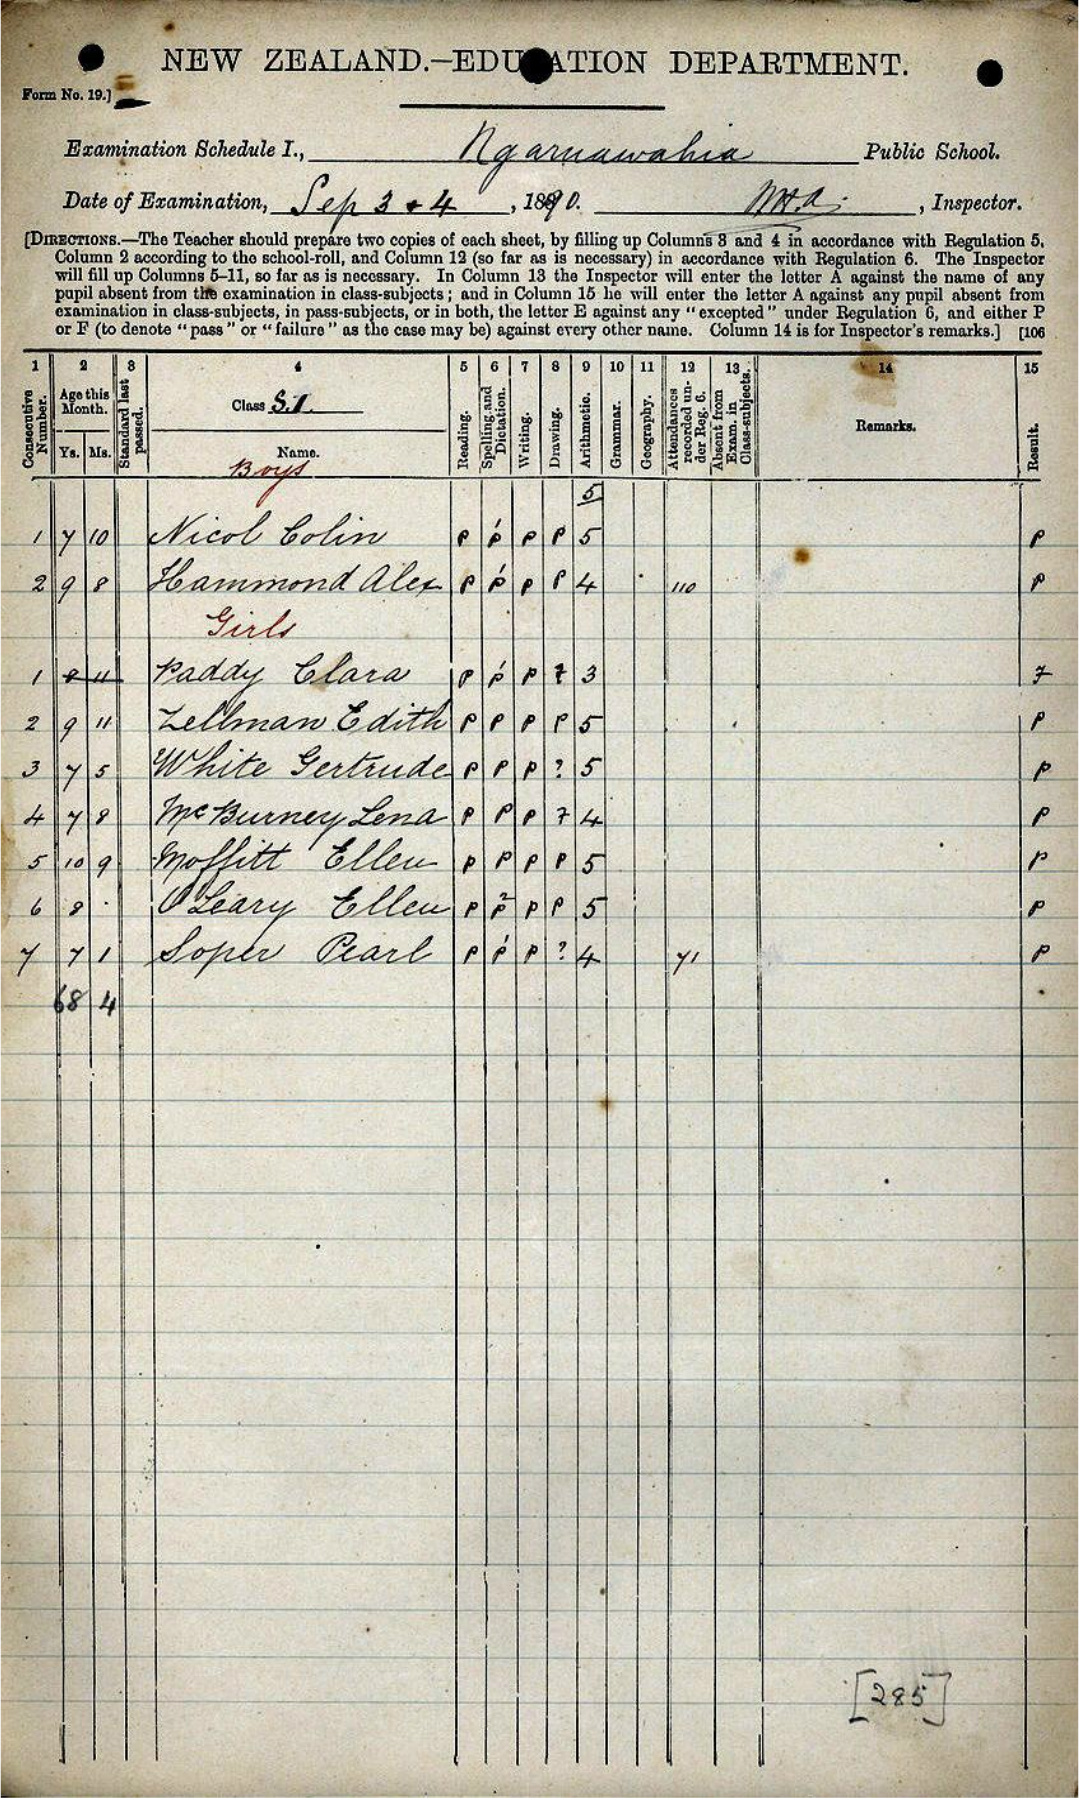 NEW ZEALAND.—EDUCATION DEPARTMENT.
Form No. 19.]
Examination Schedule I., Ngaruawahia Public School.
Date of Examination, Sep 3 + 4, 1890. , Inspector.
[DIRECTIONS.—The Teacher should prepare two copies of each sheet, by filling up Columns 3 and 4 in accordance with Regulation 5,
Column 2 according to the school-roll, and Column 12 (so far as is necessary) in accordance with Regulation 6. The Inspector
will fill up Columns 5–11, so far as is necessary. In Column 13 the Inspector will enter the letter A against the name of any
pupil absent from the examination in class-subjects; and in Column 15 he will enter the letter A against any pupil absent from
examination in class-subjects, in pass-subjects, or in both, the letter E against any "excepted" under Regulation 6, and either P
or F (to denote "pass" or "failure" as the case may be) against every other name. Column 14 is for Inspector's remarks.] [106
1 2 3 4 5 6 7 8 9 10 11 12 13 14 15
Consecutive Number. Age this Month. Ys. Ms. Standard last passed. Class S.1. Name. Reading. Spelling and Dictation. Writing. Drawing. Arithmetic. Grammar. Geography. Attendances recorded under Reg. 6. Absent from Exam. in Class-subjects. Remarks. Result.
Boys
5
1 7 10 Nicol Colin P P 1 P P 5 P
2 9 8 Hammond Alex P P 1 P P 4 110 P
Girls
1 8 11 Paddy Clara P P 1 P F 3 F
2 9 11 Zellman Edith P P P P 5 P
3 7 5 White Gertrude P P P ? 5 P
4 7 8 McBurney Lena P P P F 4 P
5 10 9 Moffitt Ellen P P P P 5 P
6 8 · O'Leary Ellen P P 2 P P 5 P
7 7 1 Soper Pearl P P 1 P ? 4 71 P
68 4
[285]